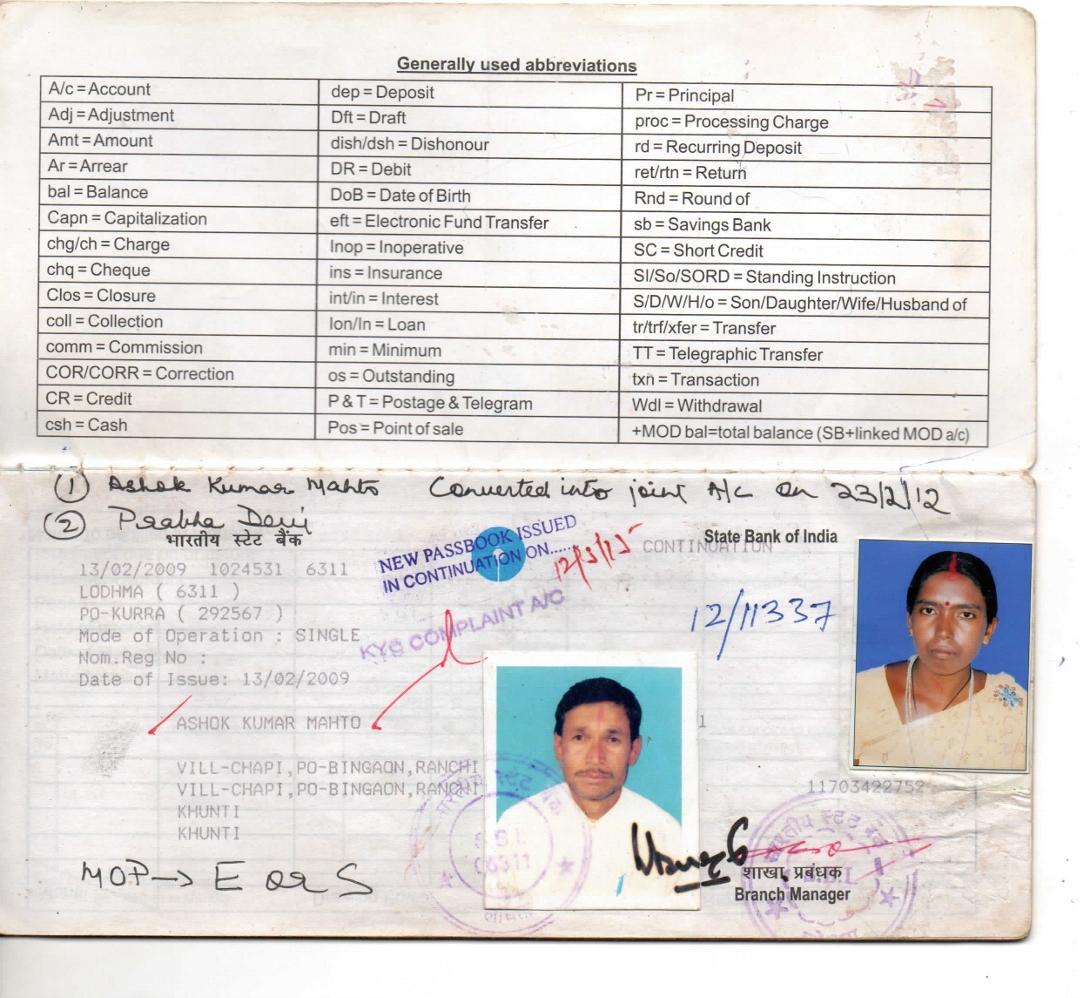 Generally used abbreviations
A/c = Account
dep = Deposit
Pr = Principal
Adj = Adjustment
Dft = Draft
proc = Processing Charge
Amt = Amount
dish/dsh = Dishonour
rd = Recurring Deposit
Ar = Arrear
DR = Debit
ret/rtn = Return
bal = Balance
DoB = Date of Birth
Rnd = Round of
Capn = Capitalization
eft = Electronic Fund Transfer
sb = Savings Bank
chg/ch = Charge
Inop = Inoperative
SC = Short Credit
chq = Cheque
ins = Insurance
SI/So/SORD = Standing Instruction
Clos = Closure
int/in = Interest
S/D/W/H/o = Son/Daughter/Wife/Husband of
coll = Collection
lon/ln = Loan
tr/trf/xfer = Transfer
comm = Commission
min = Minimum
TT = Telegraphic Transfer
COR/CORR = Correction
os = Outstanding
txn = Transaction
CR = Credit
P & T = Postage & Telegram
Wdl = Withdrawal
csh = Cash
Pos = Point of sale
+MOD bal=total balance (SB+linked MOD a/c)
(1) Ashok Kumar Mahto Converted into joint A/c on 23/2/12
(2) Prabha Devi
भारतीय स्टेट बैंक
State Bank of India
NEW PASSBOOK ISSUED
IN CONTINUATION ON...... 12/3/15
CONTINUATION
13/02/2009 1024531 6311
LODHMA ( 6311 )
PO-KURRA ( 292567 )
KYC COMPLAINT A/C
12/11337
Mode of Operation : SINGLE
Nom.Reg No :
Date of Issue: 13/02/2009
ASHOK KUMAR MAHTO
1
VILL-CHAPI,PO-BINGAON,RANCHI
VILL-CHAPI,PO-BINGAON,RANCHI
11703422752
KHUNTI
KHUNTI
S.B.I.
06311
MOP→ E or S
शाखा प्रबंधक
Branch Manager